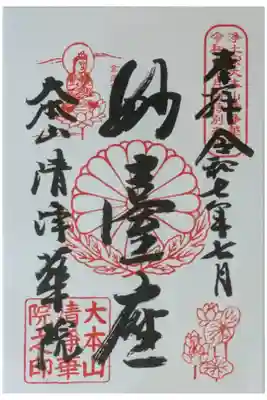 奉拝 令和七年七月
妙臺座
大本山 清浄華院
大本山
清浄華
院之印